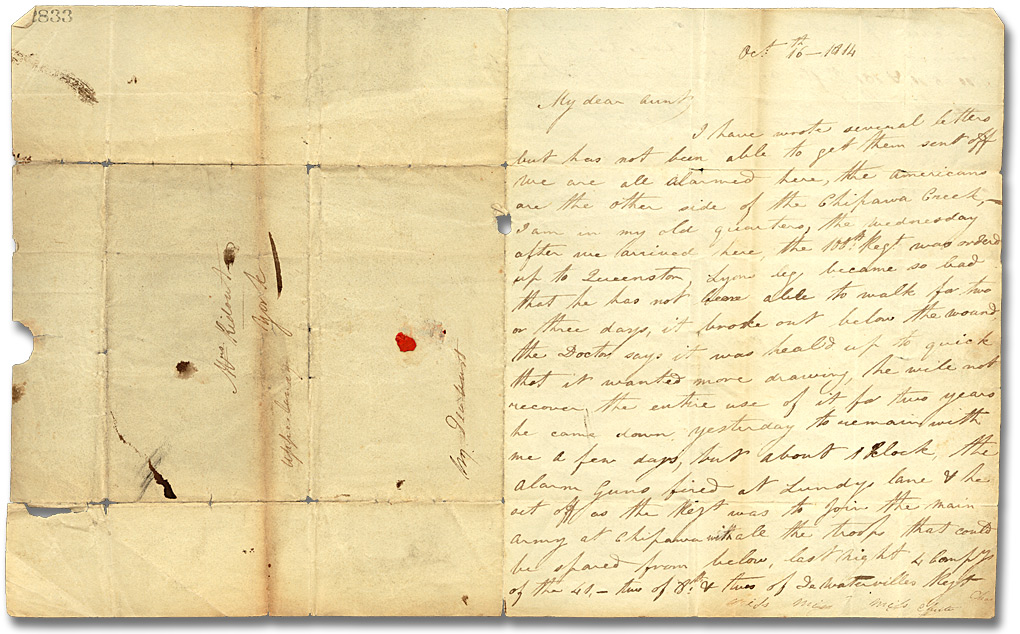 2833
Mrs Ridout
York
upper Canada
by
Oct. 16th – 1814
My dear Aunt,
I have wrote several letters
but has not been able to get them sent off
We are all alarmed here, the americans
are the other side of the Chipawa Creek,
I am in my old quarters, the Wednesday
after we arrived here, the 100th Regt was orderd
up to Queenston, Lyons leg became so bad
that he has not been able to walk for two
or three days, it broke out below the wound
the Doctor says it was heald up to quick
that it wanted more drawing, he will not
recover the entire use of it for two years
he came down yesterday to remain with
me a few days, but about 1 Klock, the
alarm Guns fired at Lundys lane & he
set off as the Regt was to Join the main
army at Chipawa with all the troops that could
be spared from below, last night 4 Compys
of the 41, – two of 8th & two of DeWatervilles Regt